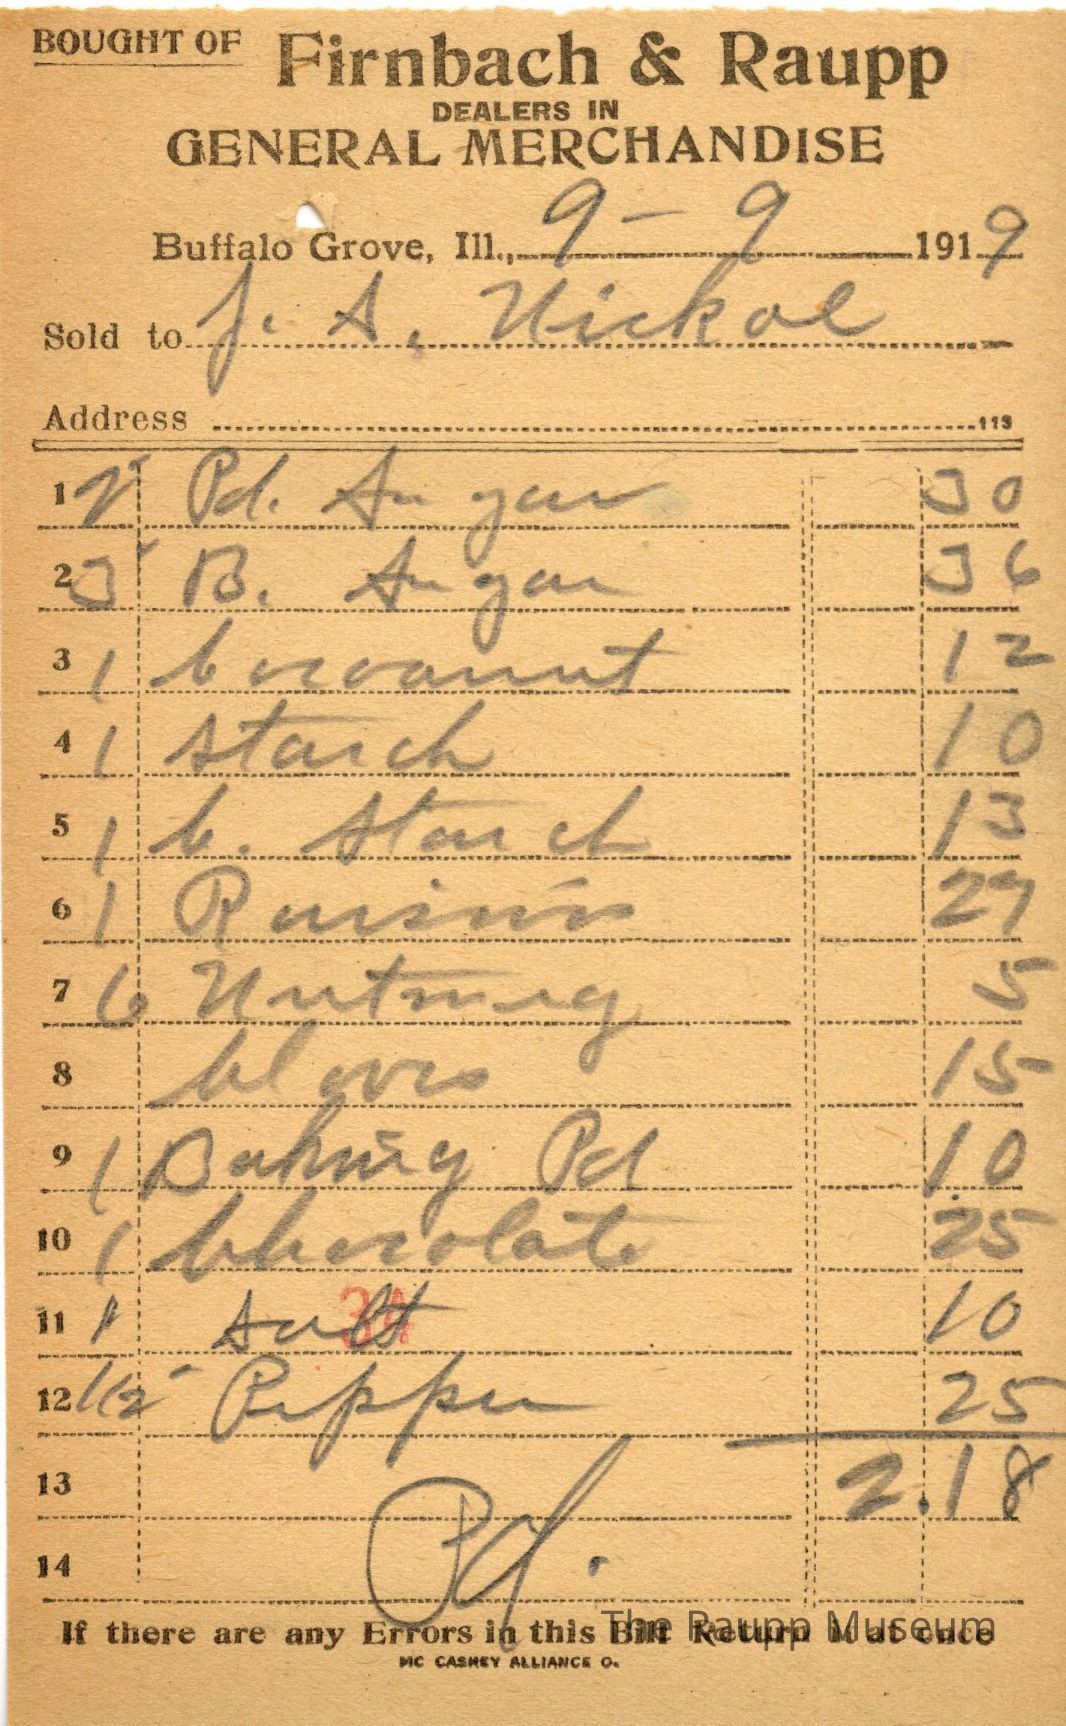 BOUGHT OF Firnbach & Raupp
DEALERS IN
GENERAL MERCHANDISE
Buffalo Grove, Ill., 9-9 1919
Sold to J. S. Nickol
Address 113
1 2 Pd. Sugar 30
2 3 B. Sugar 36
3 1 Cocoanut 12
4 1 Starch 10
5 1 C. Starch 13
6 1 Raisins 27
7 6 Nutmeg 5
8 Cloves 15
9 1 Baking Pd 10
10 1 Chocolate 25
11 1 Salt 34 10
12 1/2 Pepper 25
13 2.18
14 Pd.
If there are any Errors in this Bill Return it at once
The Raupp Museum
MC CASKEY ALLIANCE O.